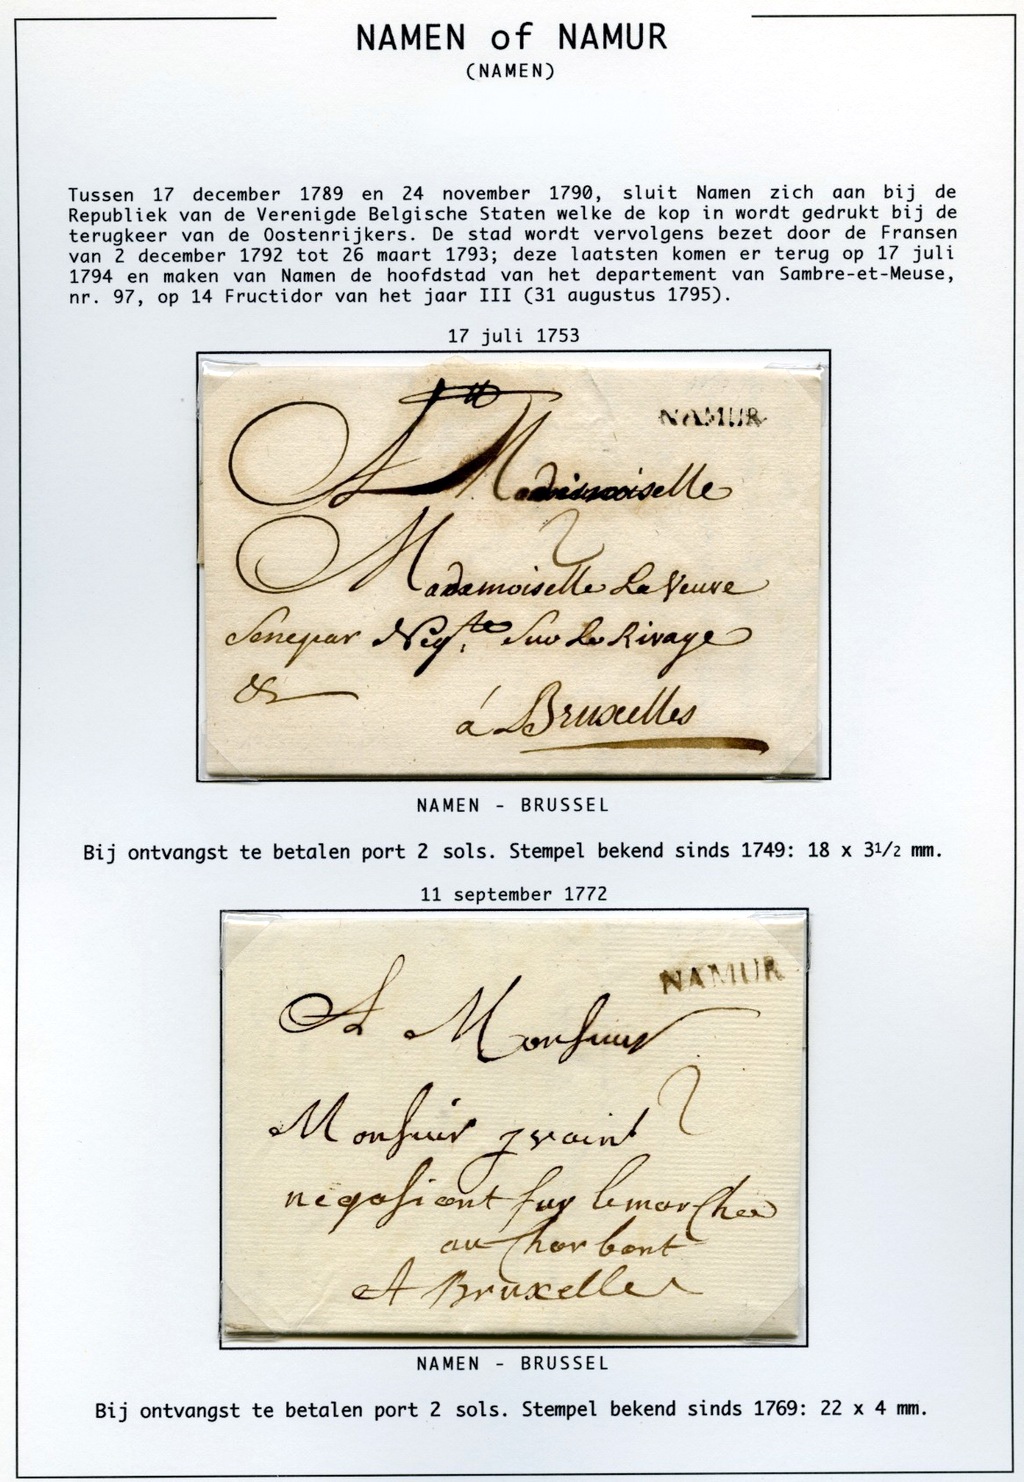 NAMEN of NAMUR
(NAMEN)
Tussen 17 december 1789 en 24 november 1790, sluit Namen zich aan bij de
Republiek van de Verenigde Belgische Staten welke de kop in wordt gedrukt bij de
terugkeer van de Oostenrijkers. De stad wordt vervolgens bezet door de Fransen
van 2 december 1792 tot 26 maart 1793; deze laatsten komen er terug op 17 juli
1794 en maken van Namen de hoofdstad van het departement van Sambre-et-Meuse,
nr. 97, op 14 Fructidor van het jaar III (31 augustus 1795).
17 juli 1753
NAMUR
A Mademoiselle
2
Madamoiselle La Veuve
Senepar Neg.te Sur Le Rivage
&
á Bruxelles
NAMEN - BRUSSEL
Bij ontvangst te betalen port 2 sols. Stempel bekend sinds 1749: 18 x 3 1/2 mm.
11 september 1772
NAMUR
A Monsieur
2
Monsieur
negosiant sur le marchee
au Charbont
A Bruxelles
NAMEN - BRUSSEL
Bij ontvangst te betalen port 2 sols. Stempel bekend sinds 1769: 22 x 4 mm.